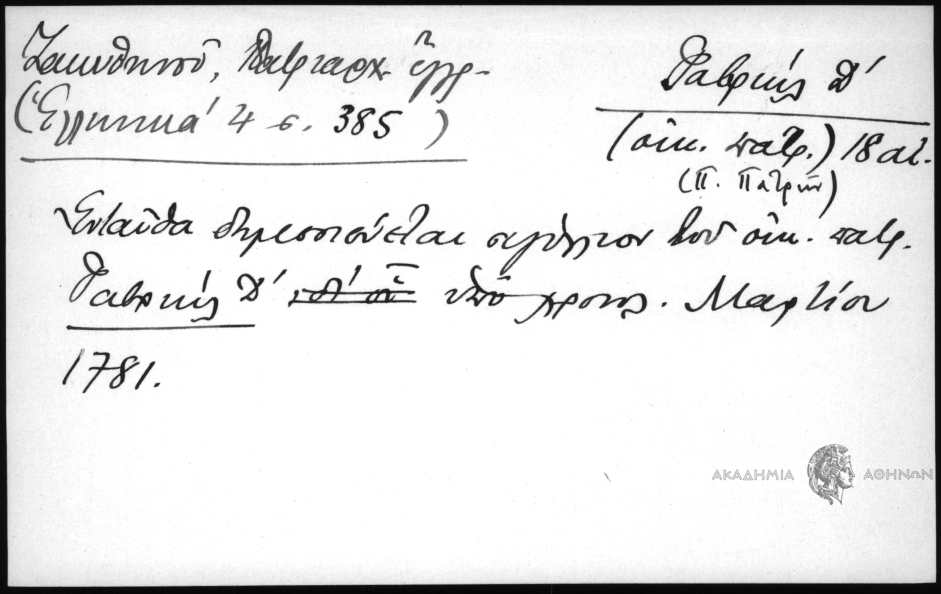 Ζακυθηνοῦ, Πατριαρχ. ἔγγρ-
(Ἑλληνικά 4 σ. 385)
Γαβριήλ Δ´
(οἰκ. πατρ.) 18 αἰ.
(Π. Πατρῶν)
Ἐνταῦθα δημοσιεύεται σιγίλλιον τοῦ οἰκ. πατρ.
Γαβριήλ Δ´ δι´ οὗ ὑπό χρονολ. Μαρτίου
1781.
ΑΚΑΔΗΜΙΑ ΑΘΗΝΩΝ